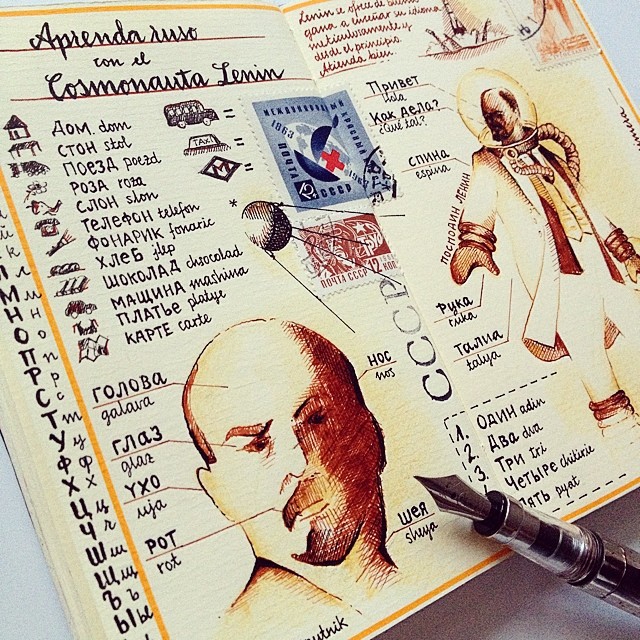 Aprenda ruso
con el
Cosmonauta Lenin
ДОМ. dom
СТОН stol
ПОЕЗД poezd
РОЗА roza
СЛОН slon
ТЕЛЕФОН telefon
ФОНАРИК fonaric
ХЛЕБ jlep
ШОКОЛАД chocolad
МАЩИНА mashina
ПЛАТЬЕ platye
КАРТЕ carte
=
TAXI =
М =
*
М
Н
О
П
Р
С
Т
У
Ф
Х
Ц
Ч
Ш ш
Щ щ
Ъ ъ
Ы ы
МЕЖДУНАРОДНЫЙ КРАСНЫЙ
1863
1963
ПОЧТА СССР
12
ПОЧТА СССР 12 КОП
СССР
ГОЛОВА
galava
ГЛАЗ
glaz
УХО
uja
РОТ
rot
НОС
nos
ШЕЯ
sheya
Lenin se ofrece de buena
gana a enseñar su idioma
meticulosamente y
desde el principio.
Atienda bien
Привет
Hola
Как дела?
¿Qué tal?
СПИНА
espina
ГОСПОДИН ЛЕНИН
Рука
ruka
Талиа
talya
1. ОДИН adin
2. Два dva
3. Три tri
Четыре chitirie
Пять pyat